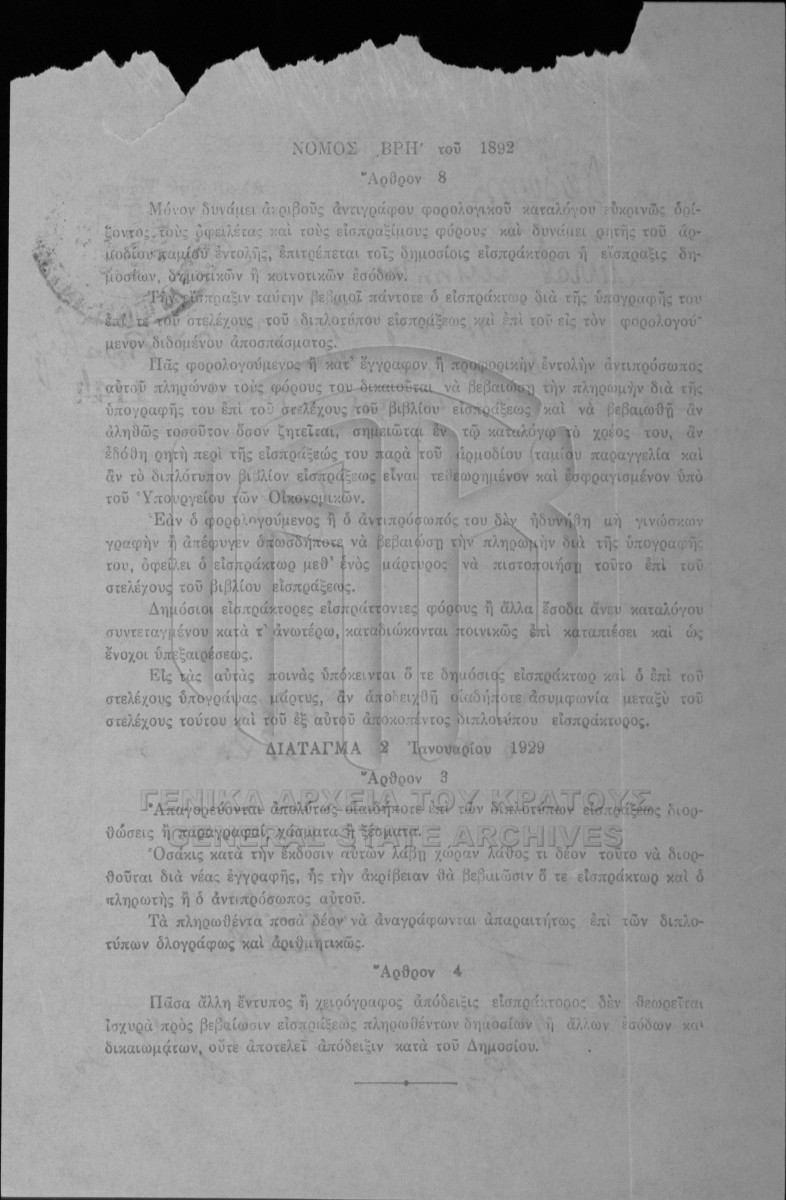 ΝΟΜΟΣ ͵ΒΡΗ′ τοῦ 1892
Ἄρθρον 8
Μόνον δυνάμει ἀκριβοῦς ἀντιγράφου φορολογικοῦ καταλόγου εὐκρινῶς ὁρί-
ζοντος τοὺς ὀφειλέτας καὶ τοὺς εἰσπραξίμους φόρους καὶ δυνάμει ρητῆς τοῦ ἁρ-
μοδίου ταμίου ἐντολῆς, ἐπιτρέπεται τοῖς δημοσίοις εἰσπράκτορσι ἡ εἴσπραξις δη-
μοσίων, δημοτικῶν ἢ κοινοτικῶν ἐσόδων.
Τὴν εἴσπραξιν ταύτην βεβαιοῖ πάντοτε ὁ εἰσπράκτωρ διὰ τῆς ὑπογραφῆς του
ἐπί τε τοῦ στελέχους τοῦ διπλοτύπου εἰσπράξεως καὶ ἐπὶ τοῦ εἰς τὸν φορολογού-
μενον διδομένου ἀποσπάσματος.
Πᾶς φορολογούμενος ἢ κατ' ἔγγραφον ἢ προφορικὴν ἐντολὴν ἀντιπρόσωπος
αὐτοῦ πληρώνων τοὺς φόρους του δικαιοῦται νὰ βεβαιώσῃ τὴν πληρωμὴν διὰ τῆς
ὑπογραφῆς του ἐπὶ τοῦ στελέχους τοῦ βιβλίου εἰσπράξεως καὶ νὰ βεβαιωθῇ ἂν
ἀληθῶς τοσοῦτον ὅσον ζητεῖται, σημειῶται ἐν τῷ καταλόγῳ τὸ χρέος του, ἂν
ἐδόθη ρητὴ περὶ τῆς εἰσπράξεώς του παρὰ τοῦ ἁρμοδίου ταμίου παραγγελία καὶ
ἂν τὸ διπλότυπον βιβλίον εἰσπράξεως εἶναι τεθεωρημένον καὶ ἐσφραγισμένον ὑπὸ
τοῦ Ὑπουργείου τῶν Οἰκονομικῶν.
Ἐὰν ὁ φορολογούμενος ἢ ὁ ἀντιπρόσωπός του δὲν ἠδυνήθη μὴ γινώσκων
γραφὴν ἢ ἀπέφυγεν ὁπωσδήποτε νὰ βεβαιώσῃ τὴν πληρωμὴν διὰ τῆς ὑπογραφῆς
του, ὀφείλει ὁ εἰσπράκτωρ μεθ' ἑνὸς μάρτυρος νὰ πιστοποιήσῃ τοῦτο ἐπὶ τοῦ
στελέχους τοῦ βιβλίου εἰσπράξεως.
Δημόσιοι εἰσπράκτορες εἰσπράττοντες φόρους ἢ ἄλλα ἔσοδα ἄνευ καταλόγου
συντεταγμένου κατὰ τ' ἀνωτέρω, καταδιώκονται ποινικῶς ἐπὶ καταπιέσει καὶ ὡς
ἔνοχοι ὑπεξαιρέσεως.
Εἰς τὰς αὐτὰς ποινὰς ὑπόκεινται ὅ τε δημόσιος εἰσπράκτωρ καὶ ὁ ἐπὶ τοῦ
στελέχους ὑπογράψας μάρτυς, ἂν ἀποδειχθῇ οἱαδήποτε ἀσυμφωνία μεταξὺ τοῦ
στελέχους τούτου καὶ τοῦ ἐξ αὐτοῦ ἀποκοπέντος διπλοτύπου εἰσπράκτορος.
ΔΙΑΤΑΓΜΑ 2 Ἰανουαρίου 1929
Ἄρθρον 3
ΓΕΝΙΚΑ ΑΡΧΕΙΑ ΤΟΥ ΚΡΑΤΟΥΣ
Ἀπαγορεύονται ἀπολύτως οἱαιδήποτε ἐπὶ τῶν διπλοτύπων εἰσπράξεως διορ-
θώσεις ἢ παραγραφαί, χάσματα ἢ ξέσματα.
GENERAL STATE ARCHIVES
Ὁσάκις κατὰ τὴν ἔκδοσιν αὐτῶν λάβῃ χώραν λάθος τι δέον τοῦτο νὰ διορ-
θοῦται διὰ νέας ἐγγραφῆς, ἧς τὴν ἀκρίβειαν θὰ βεβαιῶσιν ὅ τε εἰσπράκτωρ καὶ ὁ
πληρωτὴς ἢ ὁ ἀντιπρόσωπος αὐτοῦ.
Τὰ πληρωθέντα ποσὰ δέον νὰ ἀναγράφωνται ἀπαραιτήτως ἐπὶ τῶν διπλο-
τύπων ὁλογράφως καὶ ἀριθμητικῶς.
Ἄρθρον 4
Πᾶσα ἄλλη ἔντυπος ἢ χειρόγραφος ἀπόδειξις εἰσπράκτορος δὲν θεωρεῖται
ἰσχυρὰ πρὸς βεβαίωσιν εἰσπράξεως πληρωθέντων δημοσίων ἢ ἄλλων ἐσόδων καὶ
δικαιωμάτων, οὔτε ἀποτελεῖ ἀπόδειξιν κατὰ τοῦ Δημοσίου.